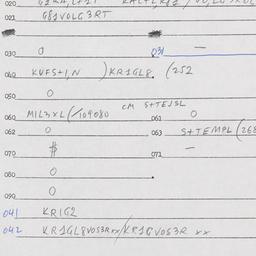 020
021 G81VOLG3RT
030 0 031 —
040 KVFS+1,N )KR1GL8. (252
050 0 CM S+TEJSL
060 MIL3xL(/109080 061 0
062 0 063 S+TEMPL(268
070 # 071 —
080 0
090 0
041 KR1G2
042 KR1GL8VOS3Rxx/KR1GVOS3R xx